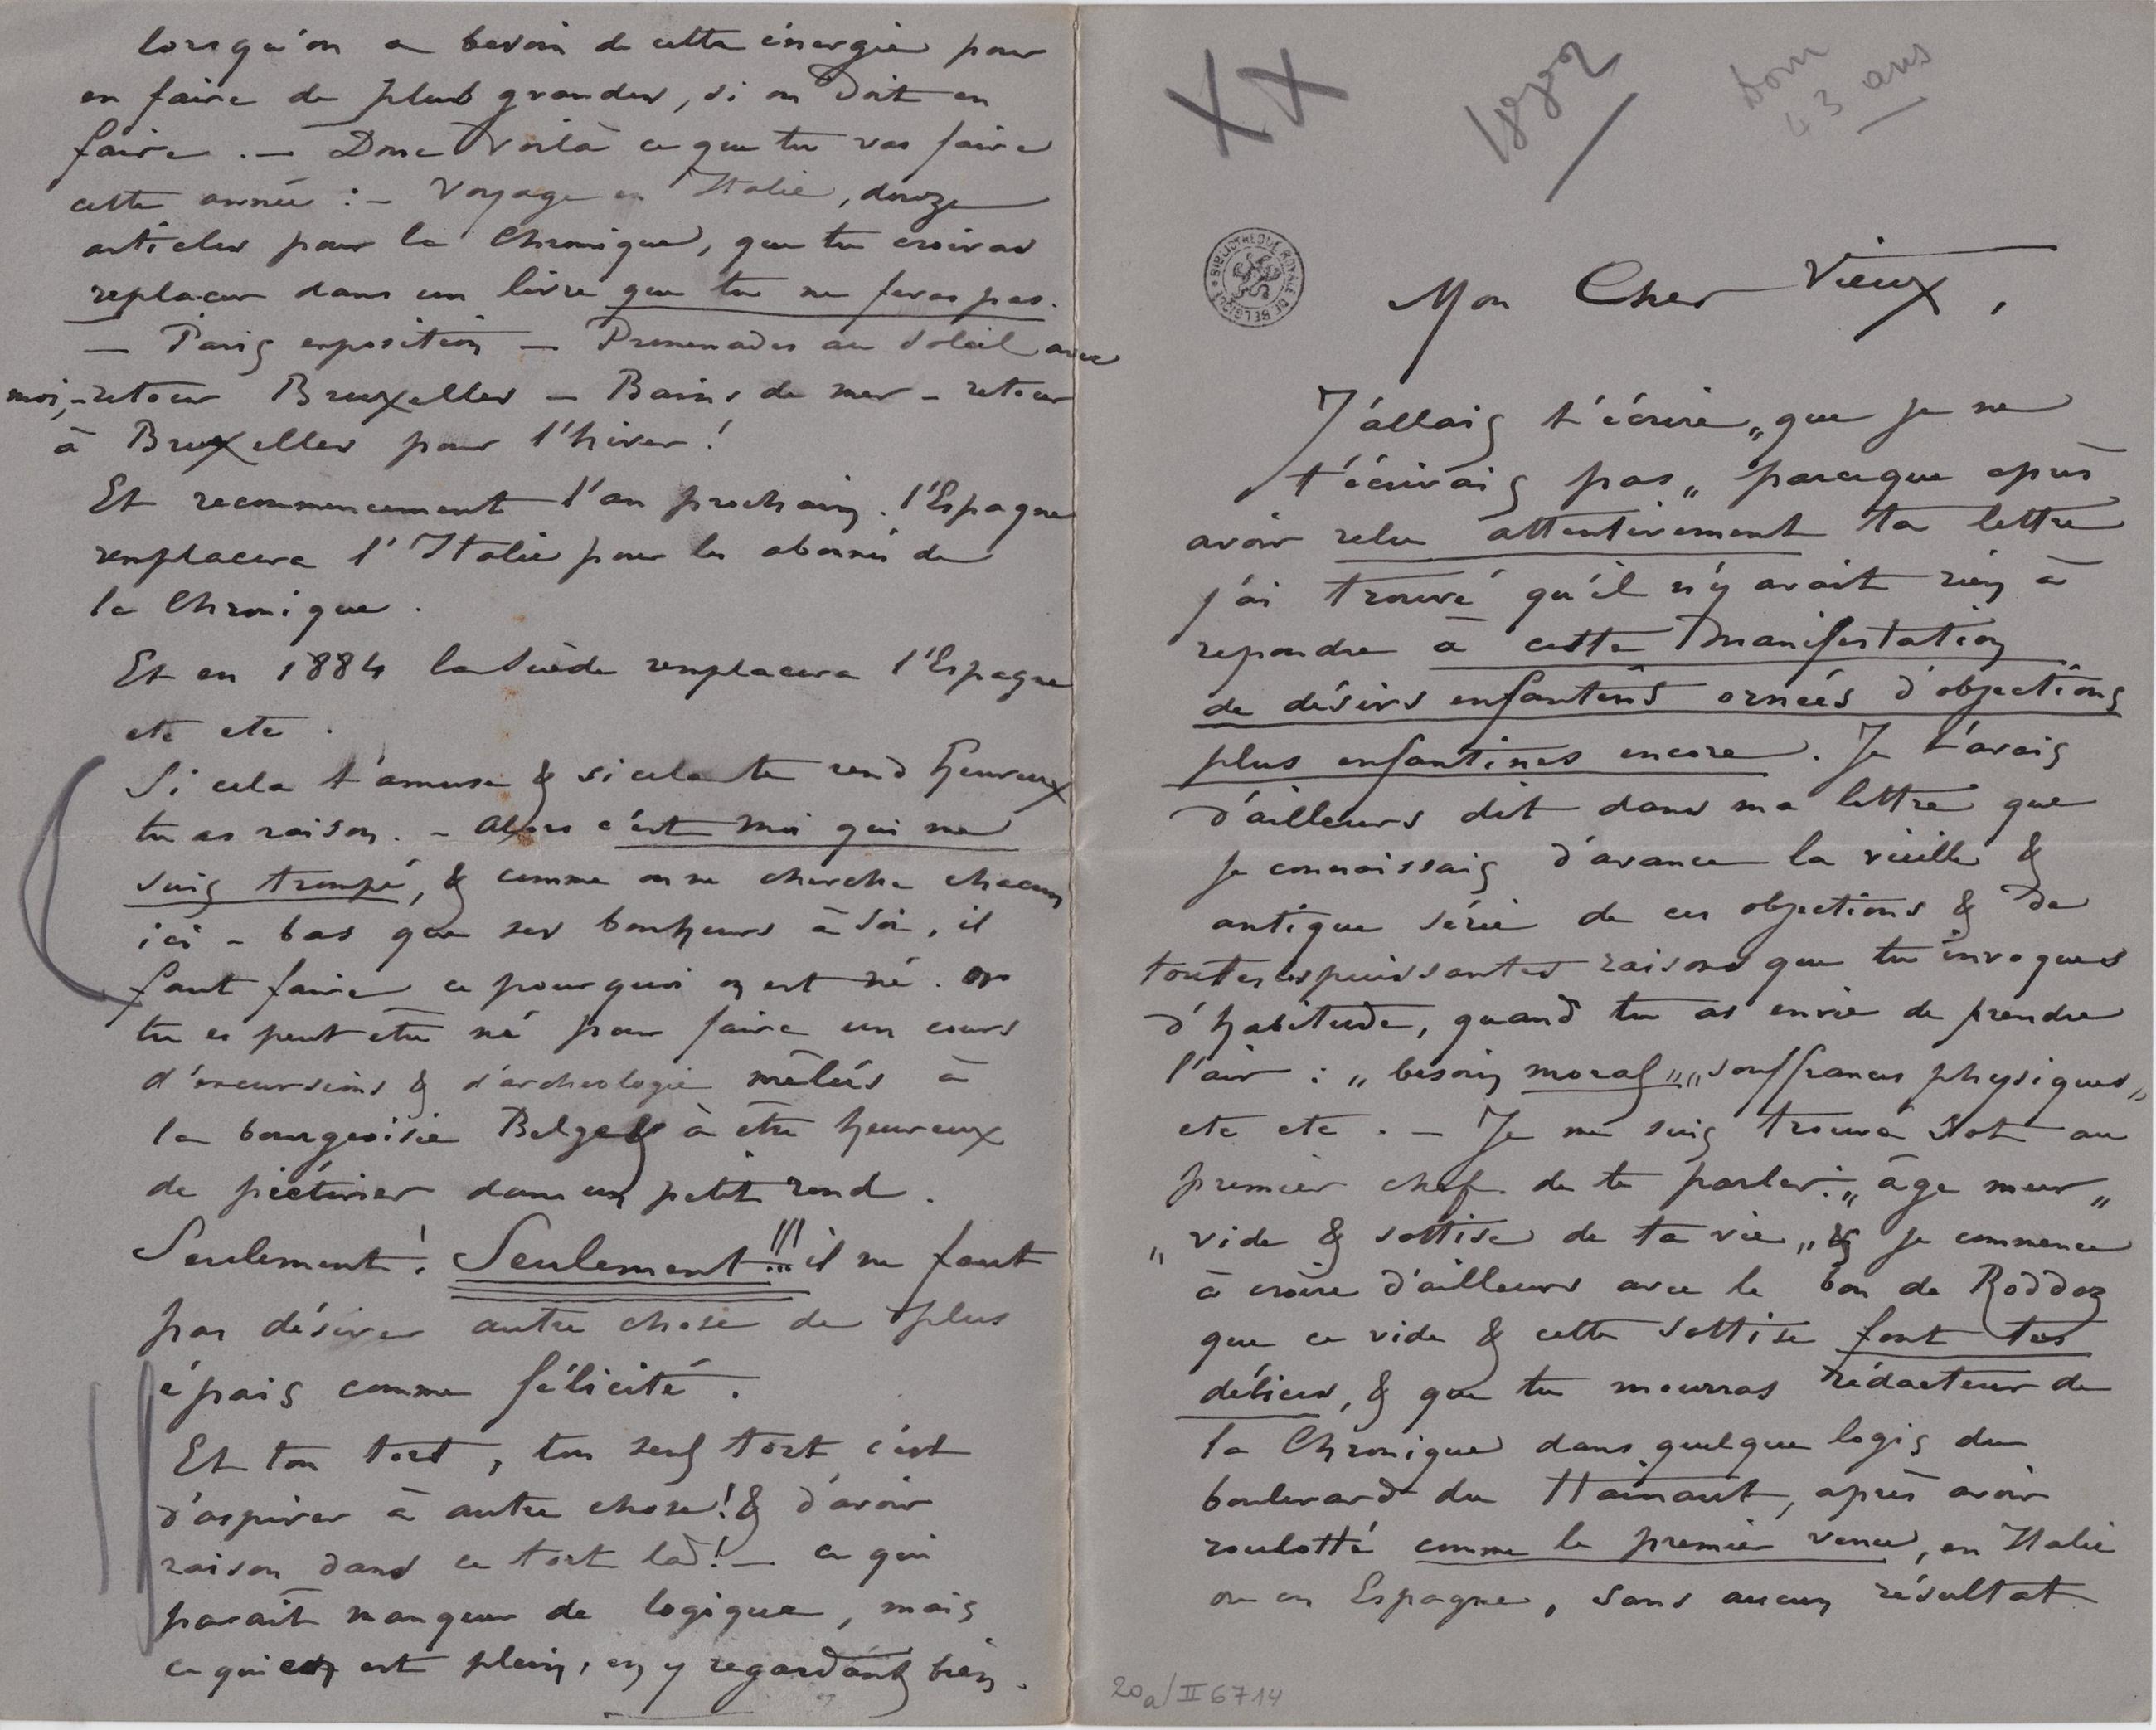 lorsqu'on a besoin de cette énergie pour
en faire de plus grandes, si on doit en
faire. — Donc voilà ce que tu vas faire
cette année : — Voyage en Italie, douze
articles pour la Chronique, que tu croiras
replacer dans un livre que tu ne feras pas.
— Paris exposition — Promenades au soleil avec
moi, — retour Bruxelles — Bains de mer — retour
à Bruxelles pour l'hiver !
Et recommencement l'an prochain. l'Espagne
remplacera l'Italie pour les abonnés de
la Chronique.
Et en 1884 la Suède remplacera l'Espagne
etc etc.
Si cela t'amuse & si cela te rend heureux
tu as raison. — Alors c'est moi qui me
suis trompé, & comme on ne cherche chacun
ici-bas que ses bonheurs à soi, il
faut faire ce pourquoi on est né. Or
tu es peut être né pour faire un cours
d'excursions & d'archeologie mêlées à
la bourgeoisie Belge & à être heureux
de piétiner dans un petit rond.
Seulement ! Seulement !!! il ne faut
pas désirer autre chose de plus
épais comme félicité.
Et ton tort, ton seul tort c'est
d'aspirer à autre chose ! & d'avoir
raison dans ce tort là ! — ce qui
parait manquer de logique, mais
ce qui en est plein, en y regardant bien.
XX
1882
Dom
43 ans
BIBLIOTHÈQUE ROYALE DE BELGIQUE
Mon Cher Vieux,
J'allais t'écrire „que je ne
t'écrivais pas„ parceque après
avoir relu attentivement ta lettre
j'ai trouvé qu'il n'y avait rien à
repondre à cette manifestation
de désirs enfantins ornées d'objections
plus enfantines encore. Je t'avais
d'ailleurs dit dans ma lettre que
je connaissais d'avance la vieille &
antique série de ces objections & de
toutes les puissantes raisons que tu invoques
d'habitude, quand tu as envie de prendre
l'air : „besoin moral„ „souffrances physiques„
etc etc. — Je me suis trouvé sot au
premier chef de te parler : „âge mur„
„vide & sottise de ta vie„ & je commence
à croire d'ailleurs avec le bon de Roddaz
que ce vide & cette sottise font tes
délices, & que tu mourras rédacteur de
la Chronique dans quelque logis du
boulevard du Hainaut, après avoir
roulotté comme le premier venu, en Italie
ou en Espagne, sans aucun résultat
20a/II 6714